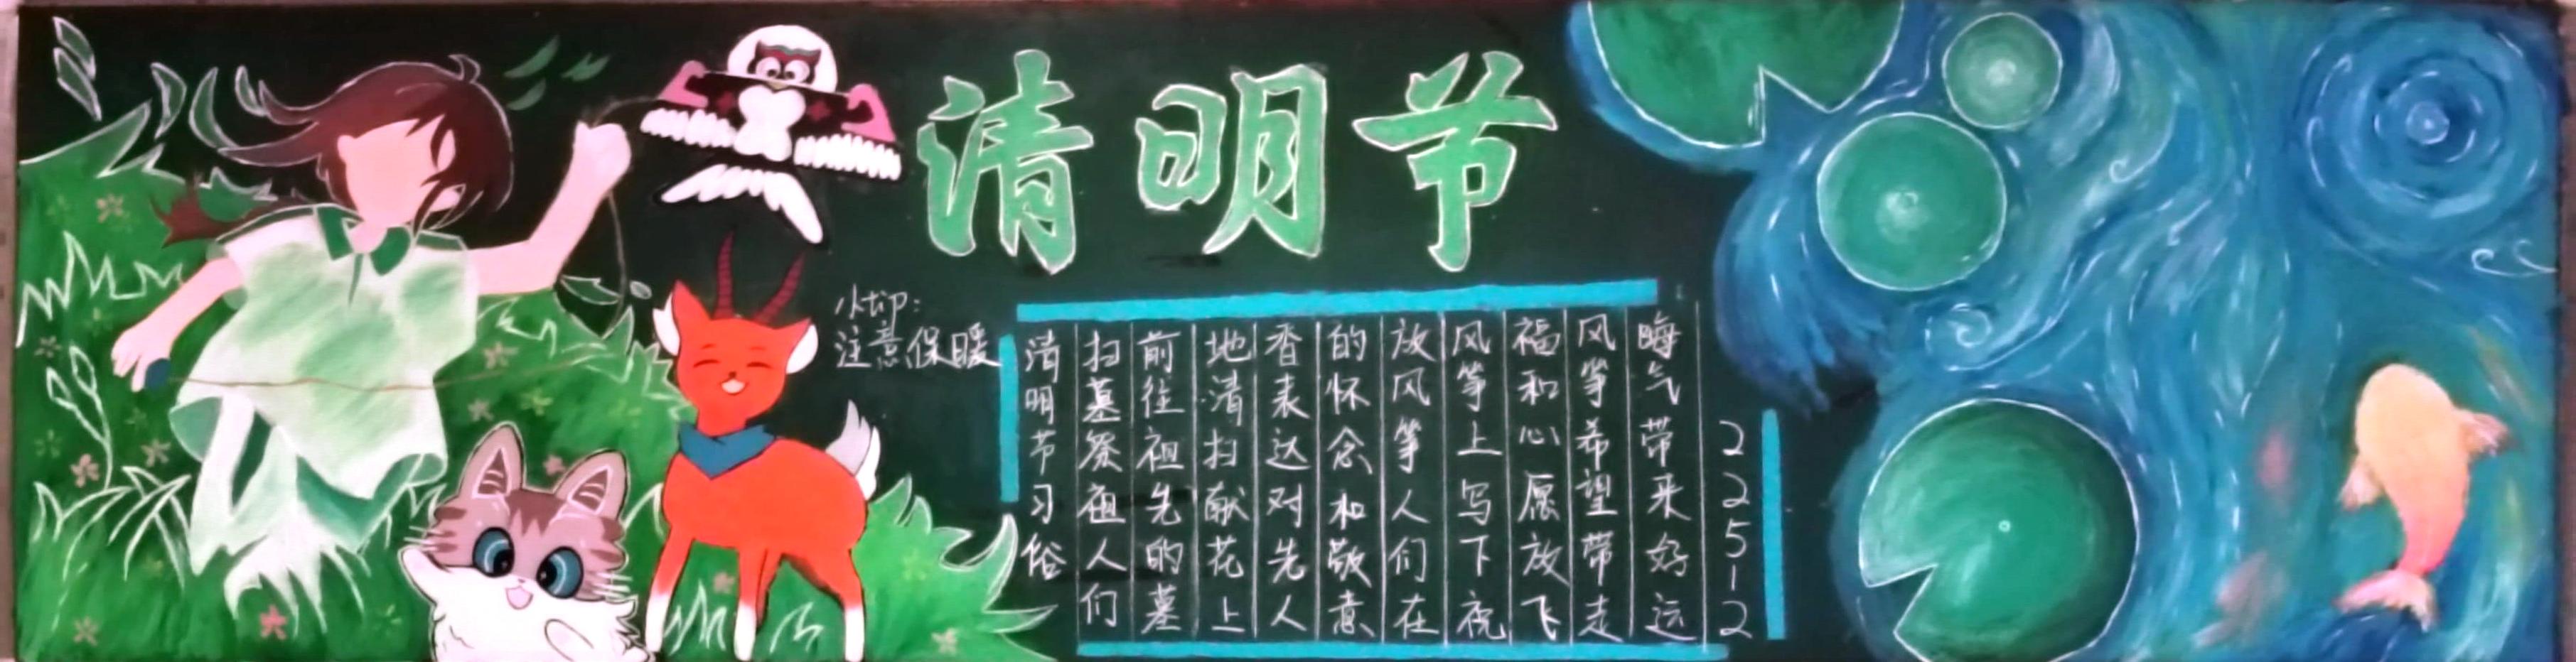 清明节
注意保暖
清明节习俗
扫墓祭祖人们
前往祖先的墓
地清扫献花上
香表达对先人
的怀念和敬意
放风筝人们在
风筝上写下祝
福和心愿放飞
风筝希望带走
晦气带来好运
225-12